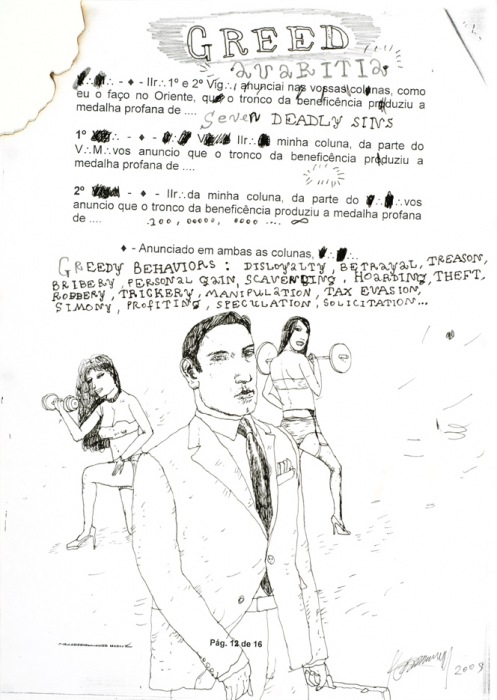 GREED
AVARITIA
∴ - ♦ - IIr∴1º e 2º Vig∴, anunciai nas vossas colunas, como
eu o faço no Oriente, que o tronco da beneficência produziu a
medalha profana de ....
SEVEN DEADLY SINS
1º ∴ - ♦ - IIr∴ minha coluna, da parte do
V∴M∴vos anuncio que o tronco da beneficência produziu a
medalha profana de ....
2º ∴ - ♦ - IIr∴da minha coluna, da parte do ∴ ∴vos
anuncio que o tronco da beneficência produziu a medalha profana
de ....
♦ - Anunciado em ambas as colunas,
GREEDY BEHAVIORS : DISLOYALTY, BETRAYAL, TREASON,
BRIBERY, PERSONAL GAIN, SCAVENGING, HOARDING, THEFT,
ROBBERY, TRICKERY, MANIPULATION, TAX EVASION,
SIMONY, PROFITING, SPECULATION, SOLICITATION...
Pág. 12 de 16
2009